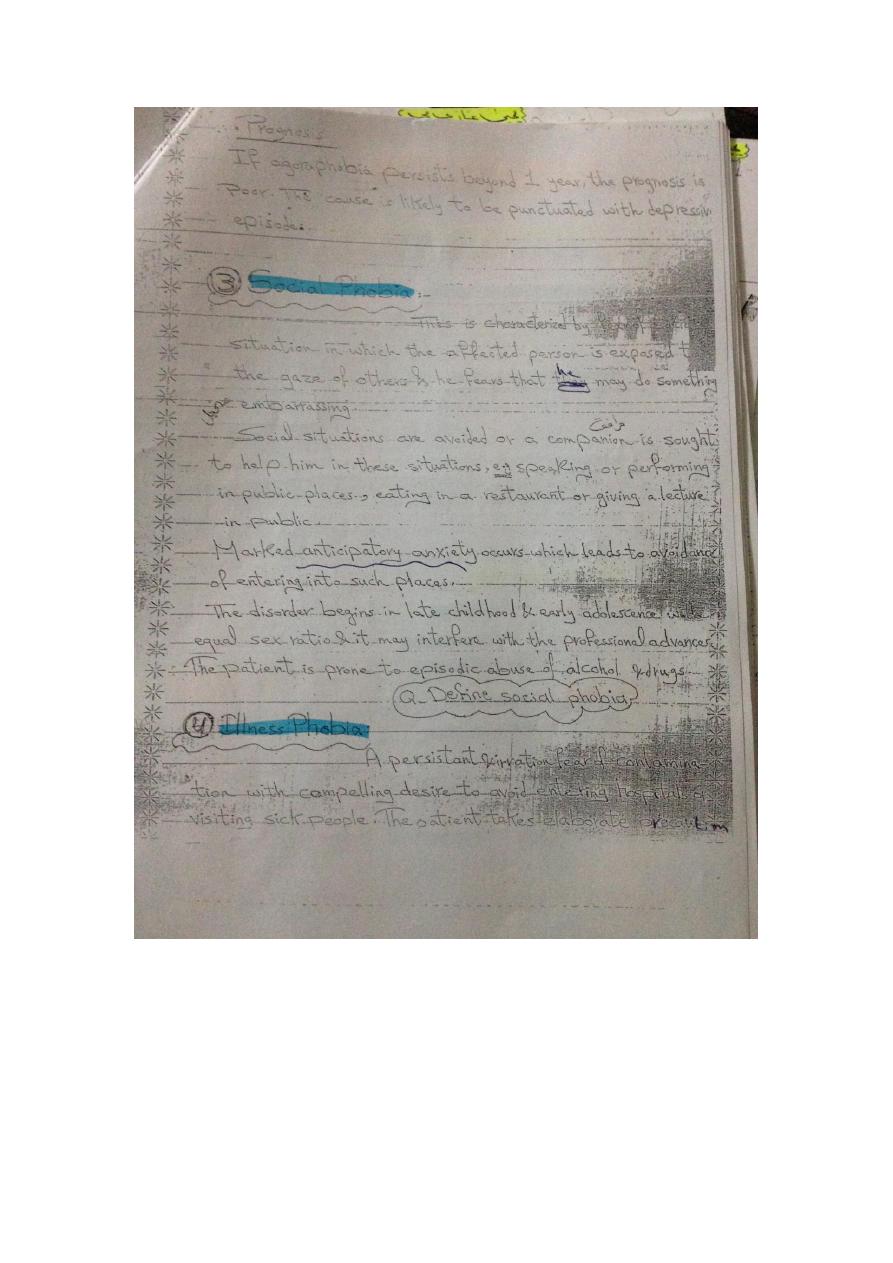 Prognosis
If agoraphobia persists beyond 1 year, the prognosis is
Poor. The cause is likely to be punctuated with depressive
episode.
3 Social Phobia:-
This is characterized by fear of
situation in which the affected person is exposed t
the gaze of others & he fears that he may do something
embarrassing.
مرافق
Social situations are avoided or a companion is sought
to help him in these situations, e.g speaking or performing
in public places, eating in a restaurant or giving a lecture
in public.
Marked anticipatory anxiety occurs which leads to avoidance
of entering into such places.
The disorder begins in late childhood & early adolescence with
equal sex ratio & it may interfere with the professional advances
The patient is prone to episodic abuse of alcohol & drugs
Q. Define social phobia
4 Illness Phobia:
A persistant & irration fear of contamina-
tion with compelling desire to avoid entering hospital or
visiting sick people. The patient takes elaborate